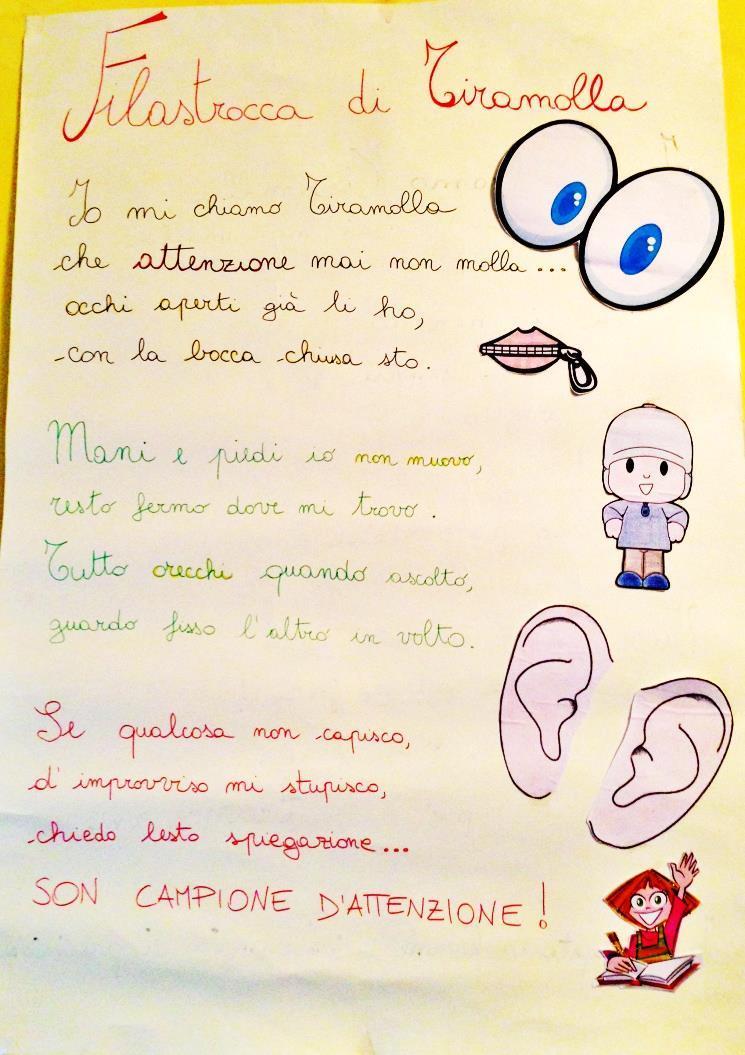 Filastrocca di Tiramolla
Io mi chiamo Tiramolla
che attenzione mai non molla...
occhi aperti già li ho,
con la bocca chiusa sto.
Mani e piedi io non muovo,
resto fermo dove mi trovo.
Tutto orecchi quando ascolto,
guardo fisso l'altro in volto.
Se qualcosa non capisco,
d'improvviso mi stupisco,
chiedo lesto spiegazione...
SON CAMPIONE D'ATTENZIONE!